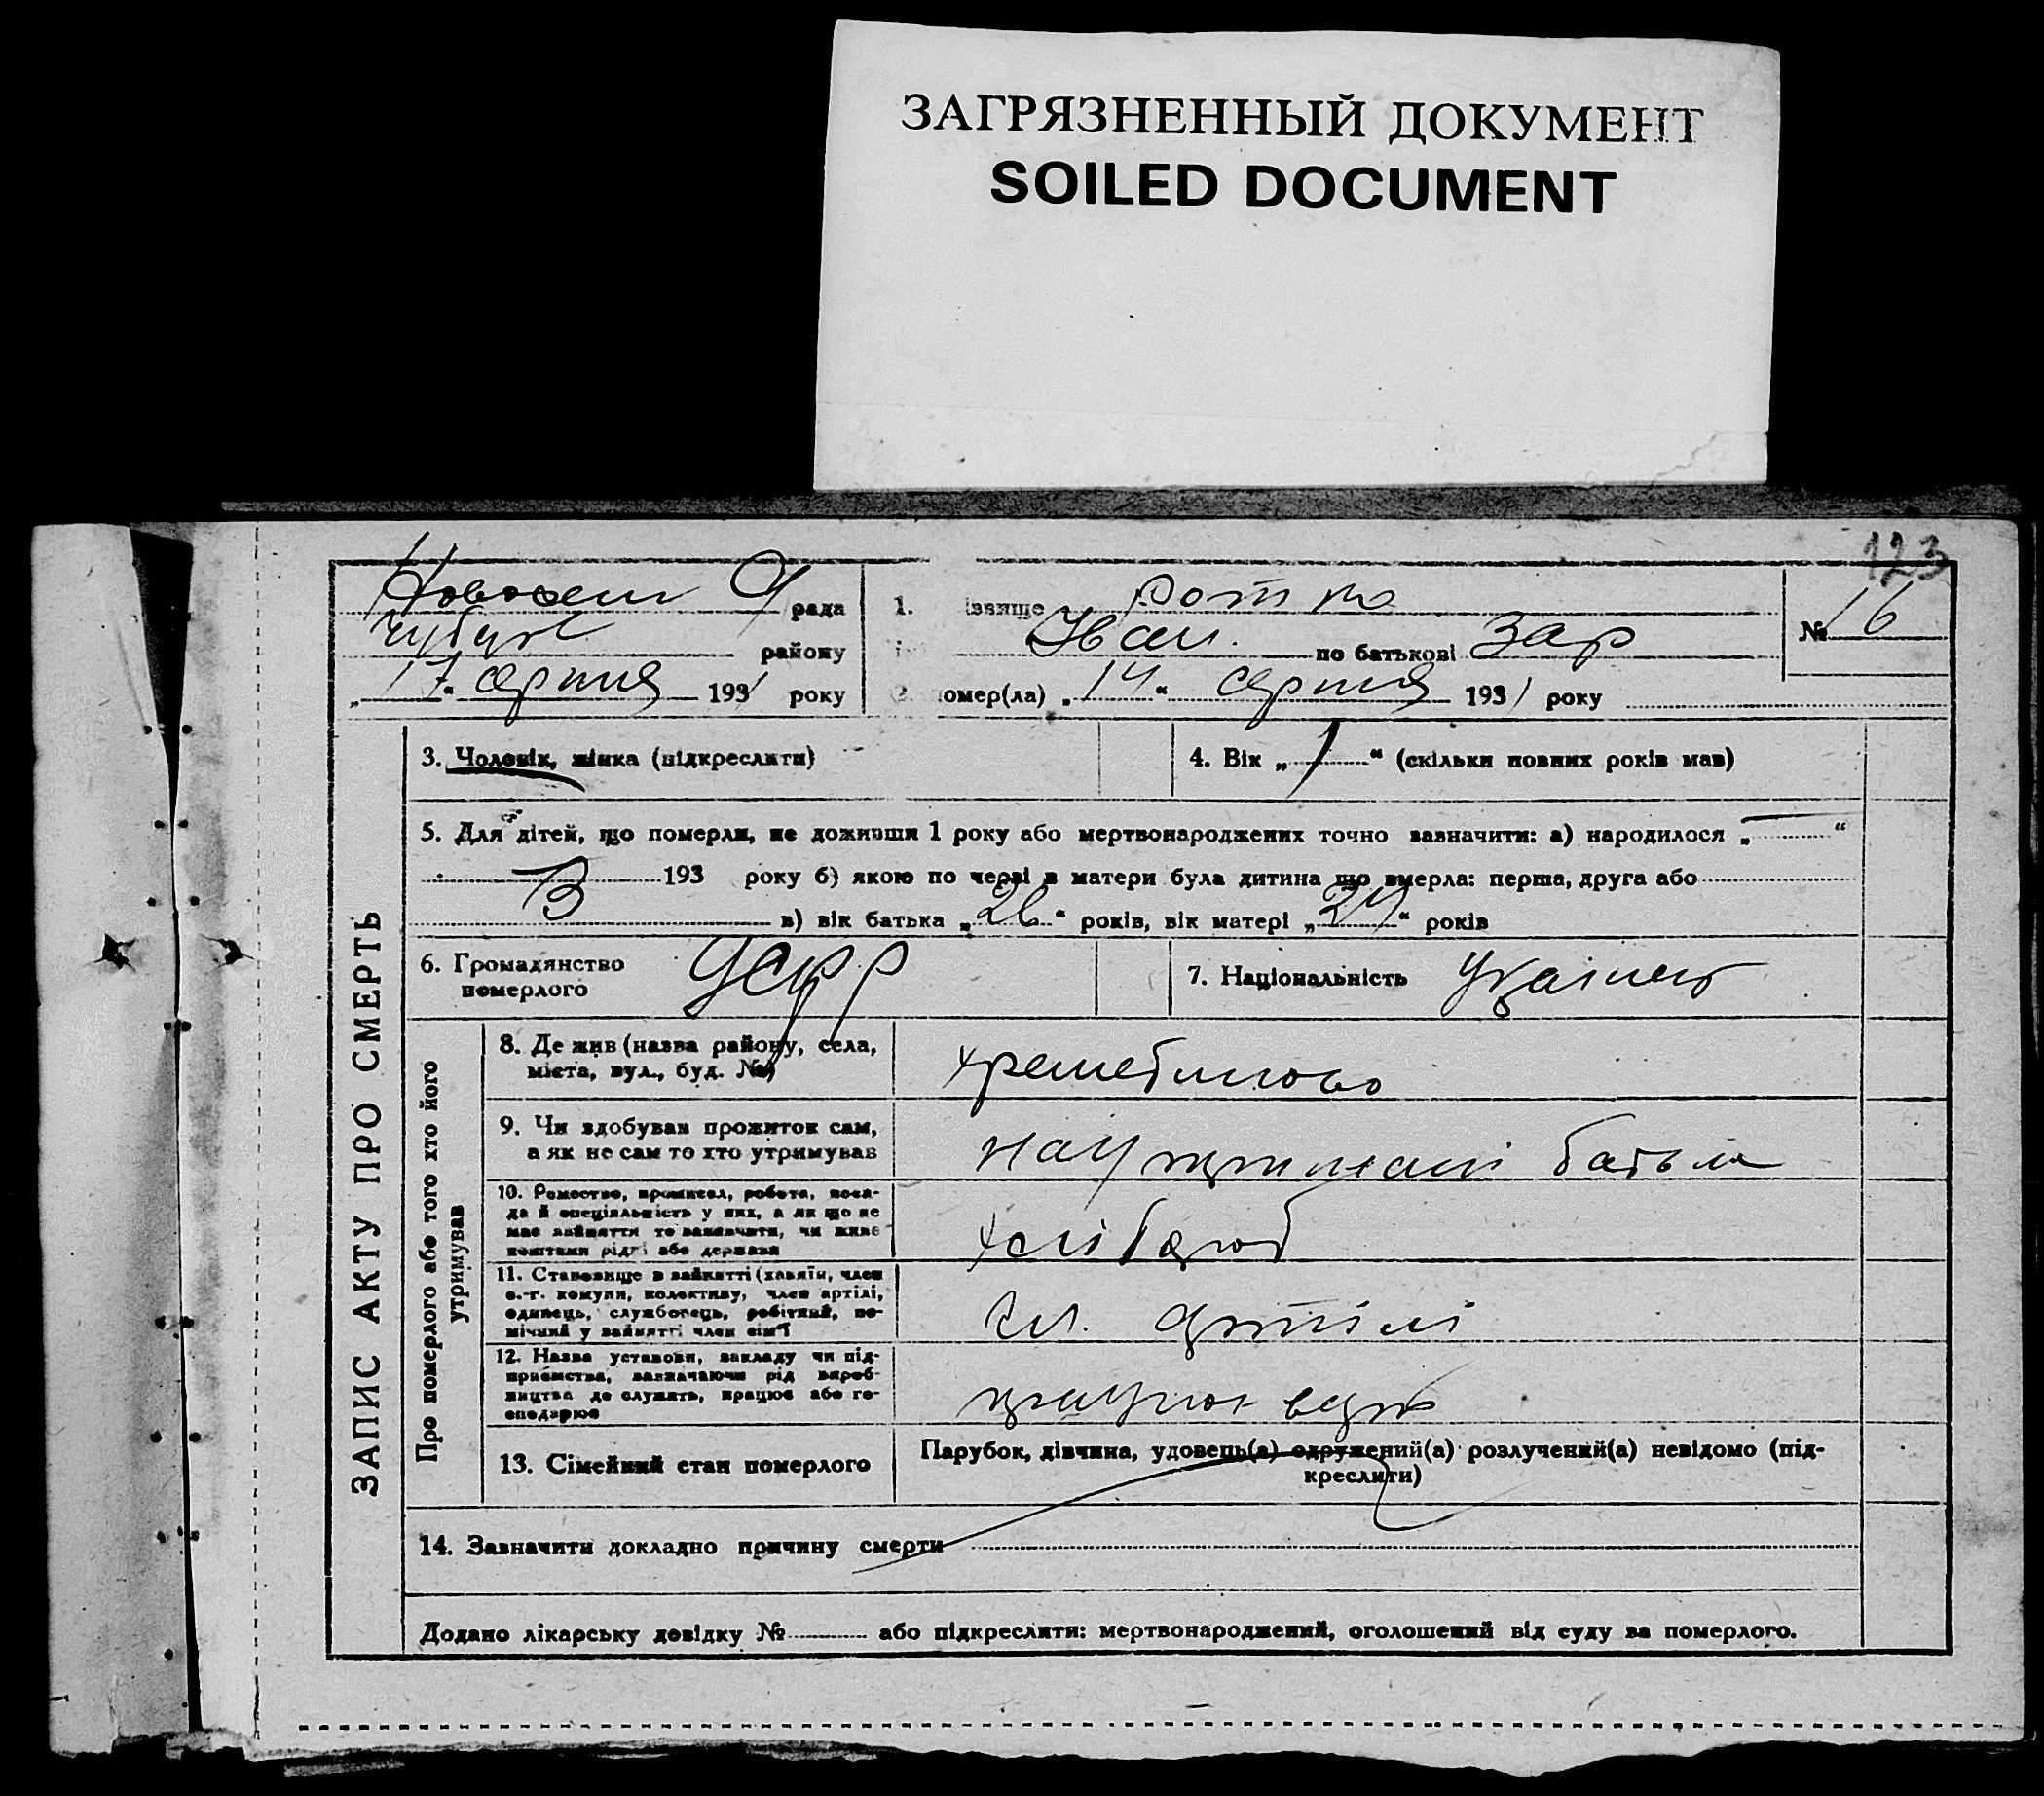 ЗАГРЯЗНЕННЫЙ ДОКУМЕНТ
SOILED DOCUMENT
123
рада
району
„17“ серпня 1931 року
1. ізвище
Іван. по батькові Зар
№ 16
омер(ла) „14“ серпня 1931 року
ЗАПИС АКТУ ПРО СМЕРТЬ
3. Чоловік, жінка (підкреслити)
4. Вік „1“ (скільки повних років мав)
5. Для дітей, що померли, не доживши 1 року або мертвонароджених точно зазначити: а) народилося „ “
193 року б) якою по черзі в матери була дитина що вмерла: перша, друга або
3 в) вік батька „26“ років, вік матері „24“ років
6. Громадянство
померлого
УСРР
7. Національність
Про померлого або того хто його
утримував
8. Де жив (назва району, села,
міста, вул., буд. №)
9. Чи здобував прожиток сам,
а як не сам то хто утримував
батька
10. Ремество, промисел, робота, поса-
да й спеціальність у них, а як що не
має зайняття то зазначити, чи живе
коштами рідні або держави
хлібороб
11. Становище в зайнятті (хазяїн, член
с.-г. комуни, колективу, член артілі,
одинець, службовець, робітний, по-
мічний у зайнятті член сім'ї
чл. артілі
12. Назва установи, закладу чи під-
приємства, зазначаючи рід вироб-
ництва де служить, працює або го-
сподарює
13. Сімейний стан померлого
Парубок, дівчина, удовець(а) одружений(а) розлучений(а) невідомо (під-
креслити)
14. Зазначити докладно причину смерти
Додано лікарську довідку № або підкреслити: мертвонароджений, оголошений від суду за померлого.